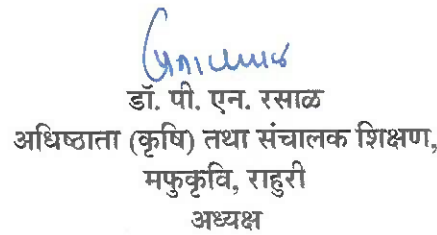 डॉ. पी. एन. रसाळ
अधिष्ठाता (कृषि) तथा संचालक शिक्षण,
मफुकृवि, राहुरी
अध्यक्ष